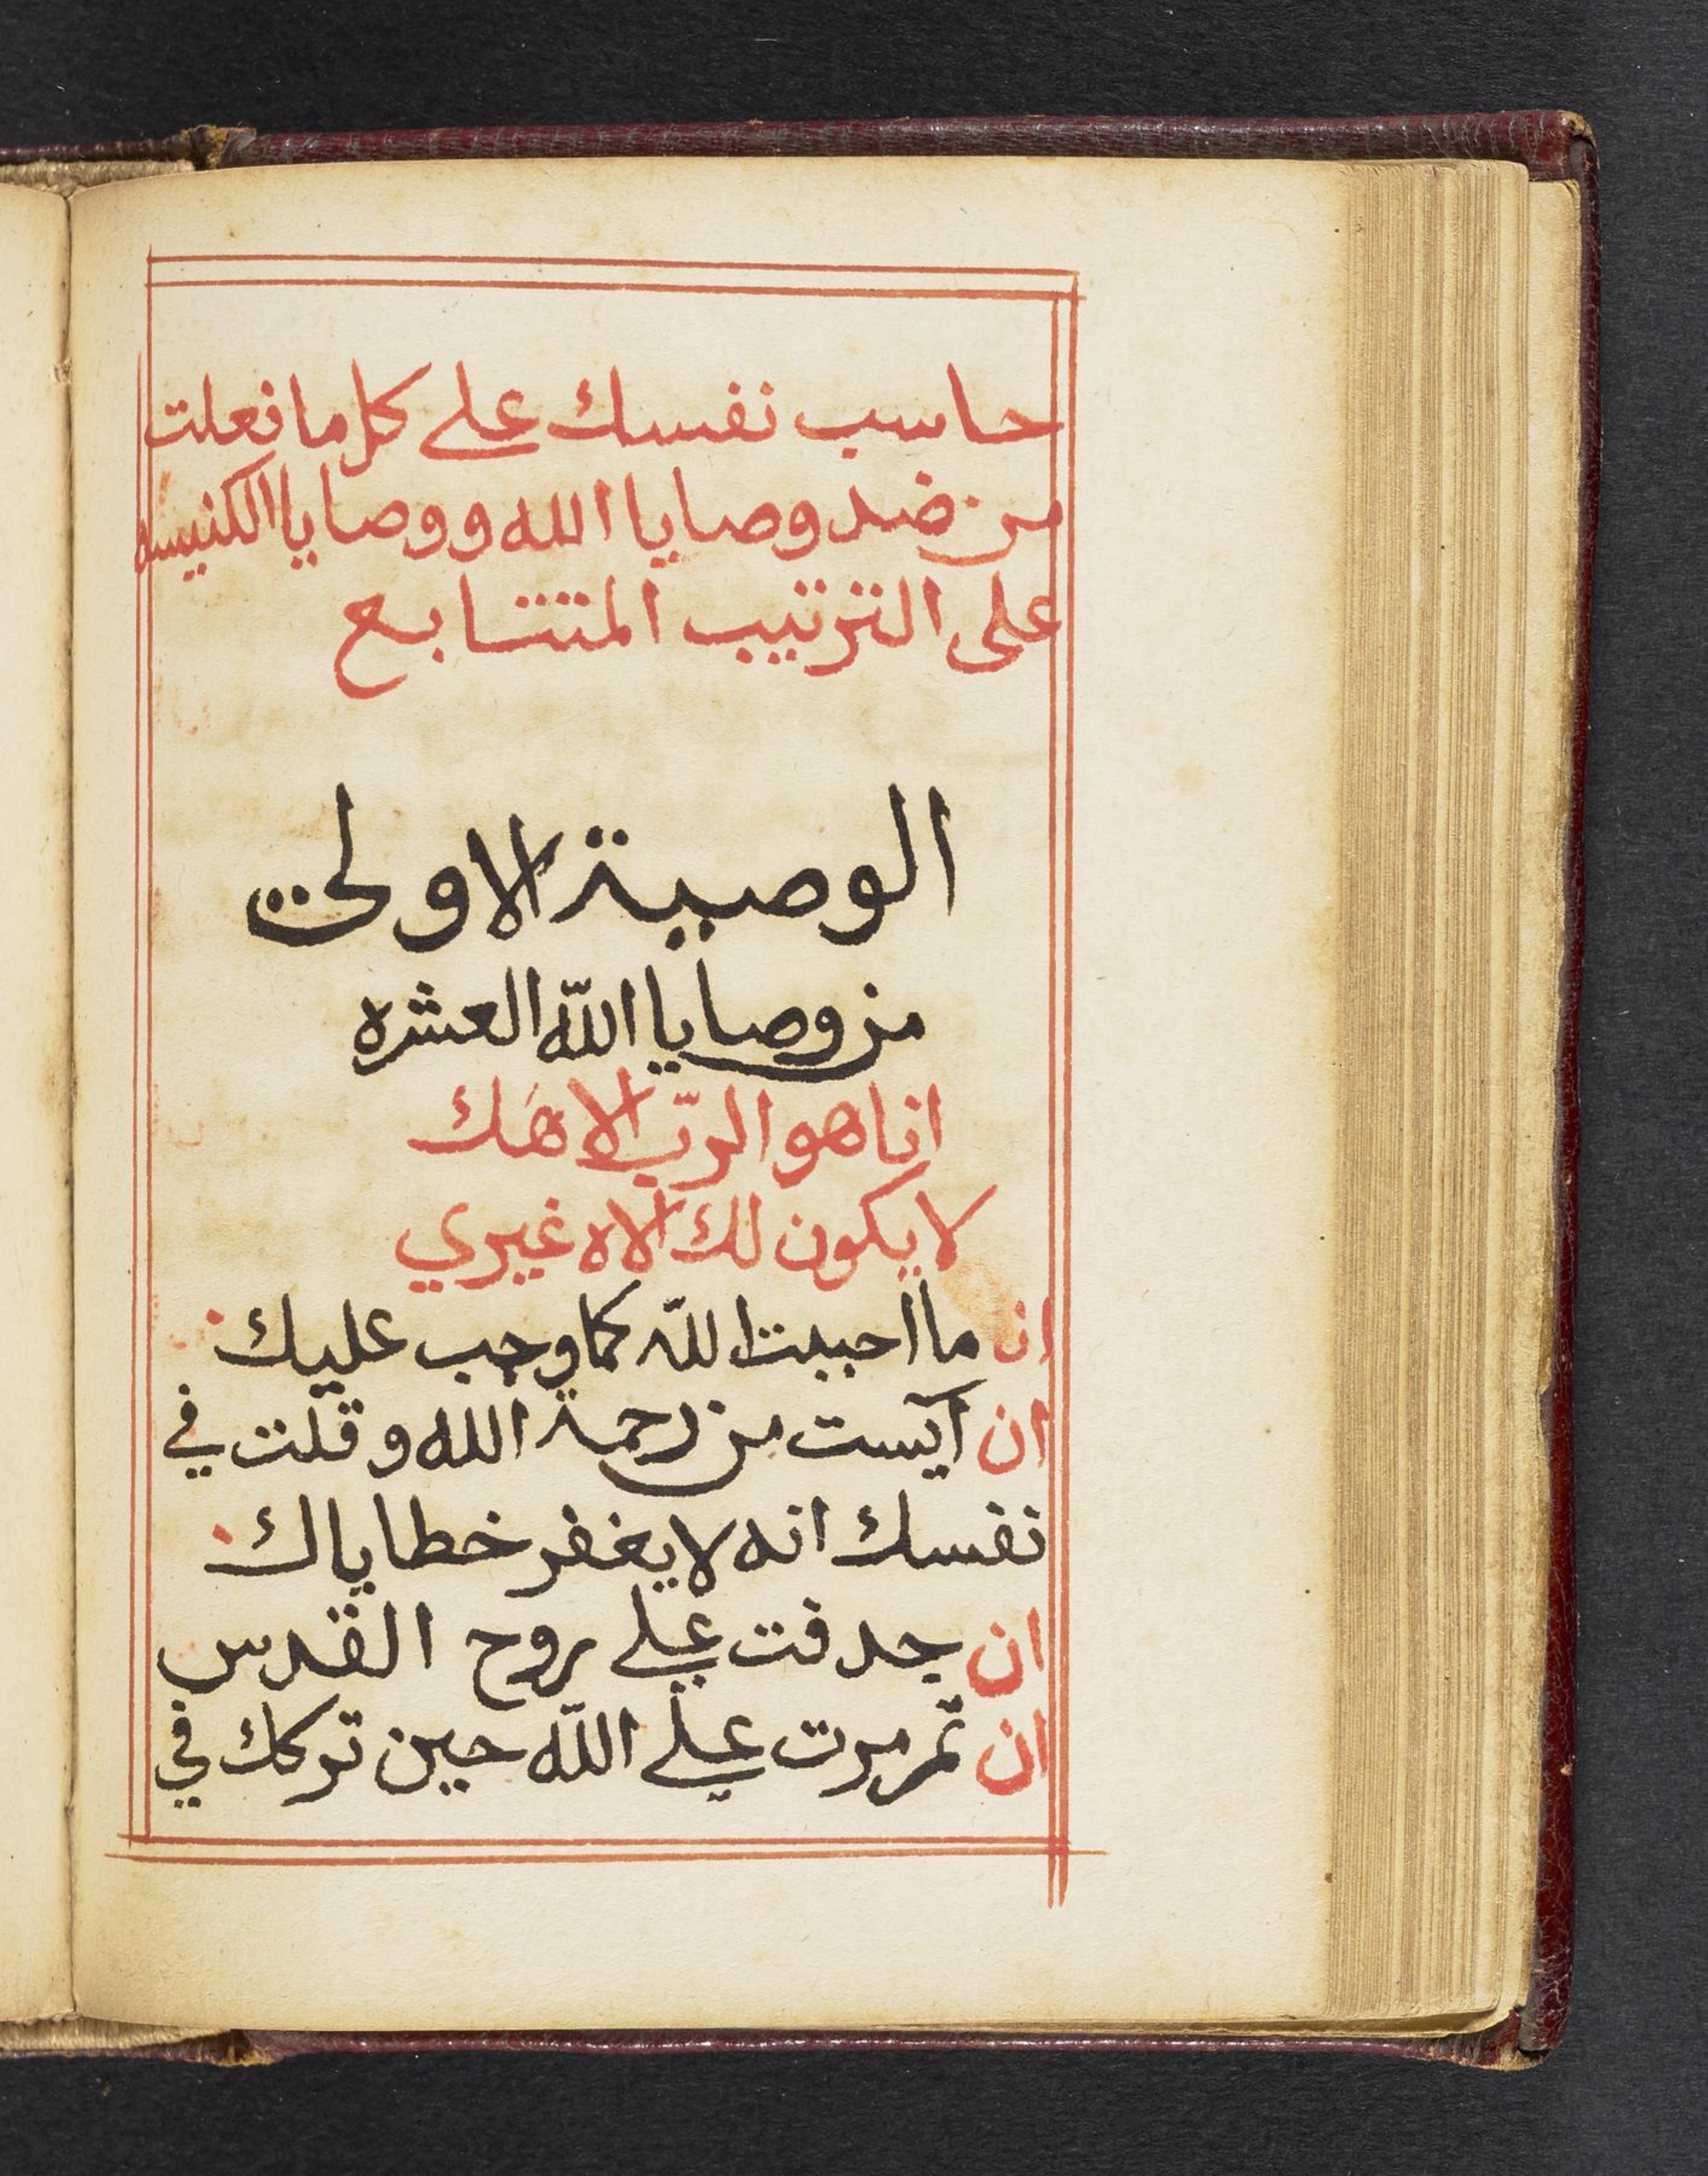 حاسب نفسك على كل ما فعلت
من ضد وصايا الله ووصايا الكنيسه
على الترتيب المتتابع
الوصية الاولى
من وصايا اللّه العشره
انا هو الربّ الاهَك
لا يكون لك الاه غيري
ان ما احببت اللّه كما وجب عليك
ان آيست من رحمة الله وقلت في
نفسك انه لا يغفر خطاياك
ان جدفت على روح القدس
ان تمرمرت على اللّه حين تركك في